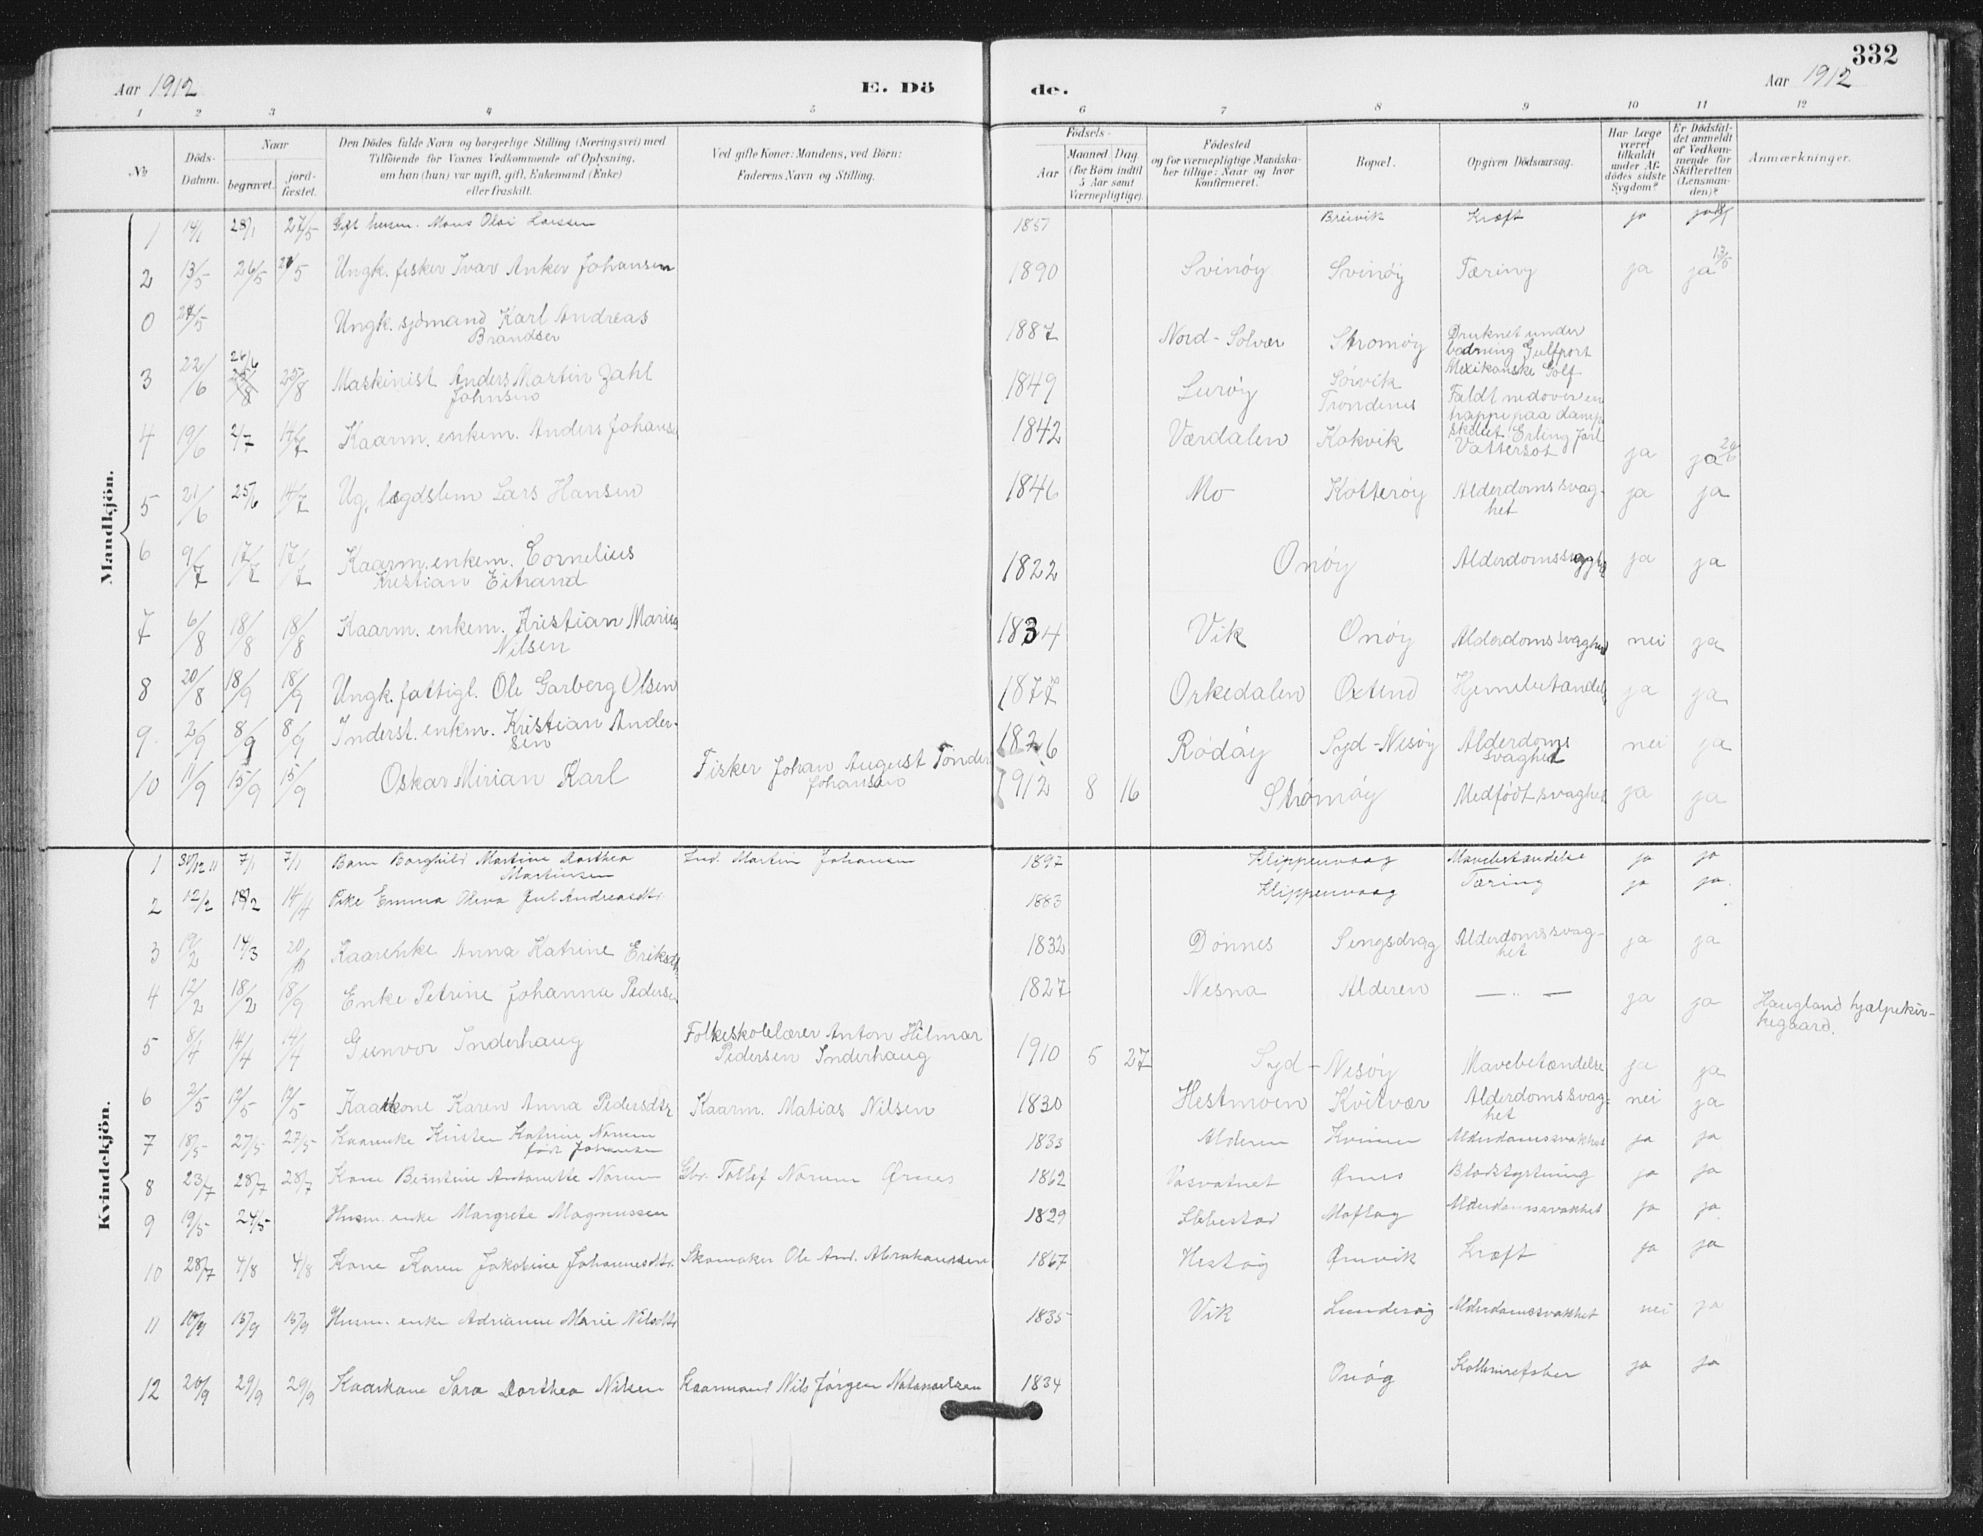 332
Aar 1912 E. Dö de. Aar 1912
1 2 3 4 5 6 7 8 9 10 11 12
No Döds-Datum. Naar begravet. jordfæstet. Den Dödes fulde Navn og borgerlige Stilling (Næringsvei) med Tilföiende for Voxnes Vedkommende af Oplysning, om han (hun) var ugift, gift, Enkemand (Enke) eller fraskilt. Ved gifte Koner: Mandens, ved Börn: Faderens Navn og Stilling. Födsels- Aar Maaned Dag (for Börn indtil 5 Aar samt Værnepligtige). Födested og for værnepligtige Mandskaber tillige: Naar og hvor konfirmeret. Bopæl. Opgiven Dödsaarsag. Har Læge været tilkaldt under Afdödes sidste Sygdom? Er Dödsfaldet anmeldt af Vedkommende for Skifteretten (Lensmanden)? Anmærkninger.
Mandkjön.
1 14/1 28/1 27/5 Gift husm. Mons Olai Larssen 1857 Breivik Kræft ja ja
2 13/5 26/5 26/5 Ungk. fisker Ivar Anker Johansen 1890 Svinöy Svinöy Tæring ja ja 13/5
0 24/5 Ungk. sjömand Karl Andreas Brandser 1887 Nord-Solvær Strömöy Druknet under badning Gulfport Mexikanske Golf
3 22/6 26/6 25/8 Maskinist Anders Martin Zahl Johnsen 1849 Luröy Sörvik Trondenes Faldt nedover en trappe paa dampskibet Erling Jarl
4 19/6 2/7 14/7 Kaarm. enkem. Anders Johanse 1842 Værdalen Kokvik Vattersot ja ja 20/6
5 21/6 25/6 14/7 Ug. lægdslem Lars Hansen 1846 Mo Kotteröy Alderdomssvaghet ja ja
6 9/7 17/7 17/7 Kaarm. enkem. Cornelius Kristian Eitrand 1822 Onöy Alderdomssvagh ja ja
7 6/8 18/8 18/8 Kaarm. enkem. Kristian Marius Nilsen 1834 Vik Onöy Alderdomssvaghed nei ja
8 20/8 18/9 18/9 Ungk. fattigl. Ole Garberg Olsen 1877 Orkedalen Oxtind Hjernebetændel ja ja
9 2/9 8/9 8/9 Inderst. enkm. Kristian Andersen 1826 Rödöy Syd-Nesöy Alderdoms svaghed nei ja
10 11/9 15/9 15/9 Oskar Mirian Karl Fisker Johan August Tönder Johansen 1912 8 16 Strömöy Medfödt svaghet ja ja
Kvindekjön.
1 30/12 11 7/1 7/1 Barn Borghild Martine Dorthea Martinsen Ind. Martin Johansen 1897 Klippenvaag Mavebetændelse ja ja
2 12/2 18/2 14/4 Pike Emma Oleva Jul Andreasdtr. 1883 Klippenvaag Tæring ja ja.
3 19/2 14/3 20/10 Kaarenke Anna Katrine Eriksdt 1832 Dönnes Sengsdrag Alderdomssvaghet ja ja
4 12/2 18/2 18/9 Enke Petrine Johanna Peders 1827 Nesna Alderen — „ — ja ja Haugland hjælpekirkegaard.
5 8/4 14/4 14/4 Gunvor Inderhaug Folkeskolelærer Anton Hilmar Pedersen Inderhaug 1910 5 27 Syd-Nesöy Mavebetændelse ja ja
6 2/5 19/5 19/5 Kaarkone Karen Anna Pedersdtr Kaarm. Matias Nilsen 1830 Hestmoen Kvitvær Alderdomssvaghet nei ja
7 18/5 27/5 27/5 Kaarenke Kirsten Katrine Norum född Johansen 1833 Alderen Kvinen Alderdomssvakhet ja ja
8 23/7 28/7 28/7 Kone Berntine Antonette Norum Gbr. Tollef Norum Ørnes 1862 Vasvatnet Ørnes Blodstyrtning ja ja
9 19/5 24/5 Husm. enke Margrete Magnussen 1829 Ibbestad Moflag Alderdomssvakhet ja ja
10 28/7 4/8 4/8 Kone Karen Jakobine Johannesdtr. Skomaker Ole And. Abrahamsen 1867 Hestöy Ørnvik Kræft ja ja
11 10/9 15/9 15/9 Husm. enke Adrianne Marie Nilsdtr 1835 Vik Lundesöy Alderdomssvakhet nei ja
12 20/9 29/9 29/9 Kaarkone Sara Dorthea Nilsen Kaarmand Nils Jörgen Natanaelsen 1834 Onöy ja ja